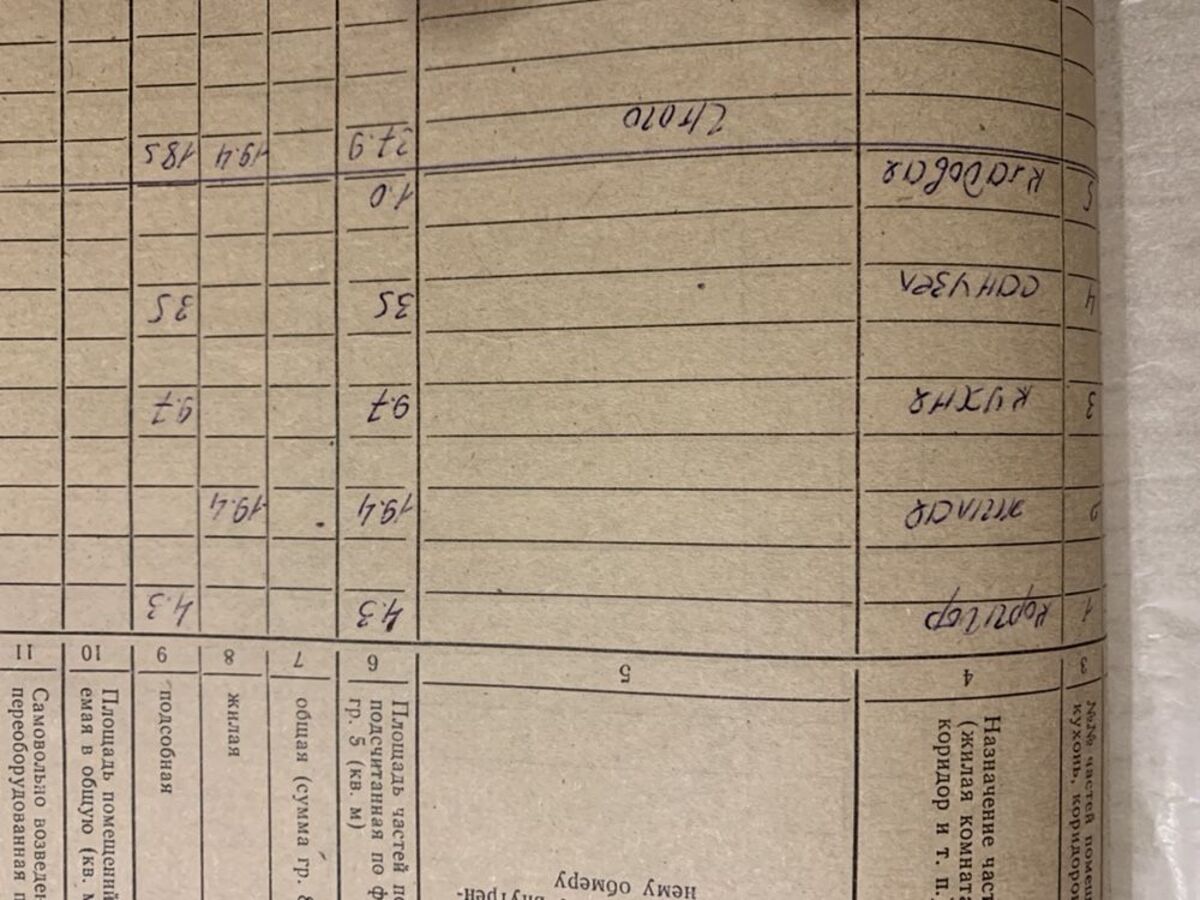 №№ частей
кухонь,
Назначение
(жилая
коридор и т. п.
нему обмеру
Площадь частей
подсчитанная по
гр. 5 (кв. м)
общая (сумма гр.
жилая
подсобная
Площадь помещений
емая в общую (кв.
Самовольно
переоборудованная
3 4 5 6 7 8 9 10 11
1 коридор 4.3 4.3
2 жилая 19.4 19.4
3 кухня 9.7 9.7
4 санузел 35 35
5 кладовая 1.0
Итого 37.9 19.4 185